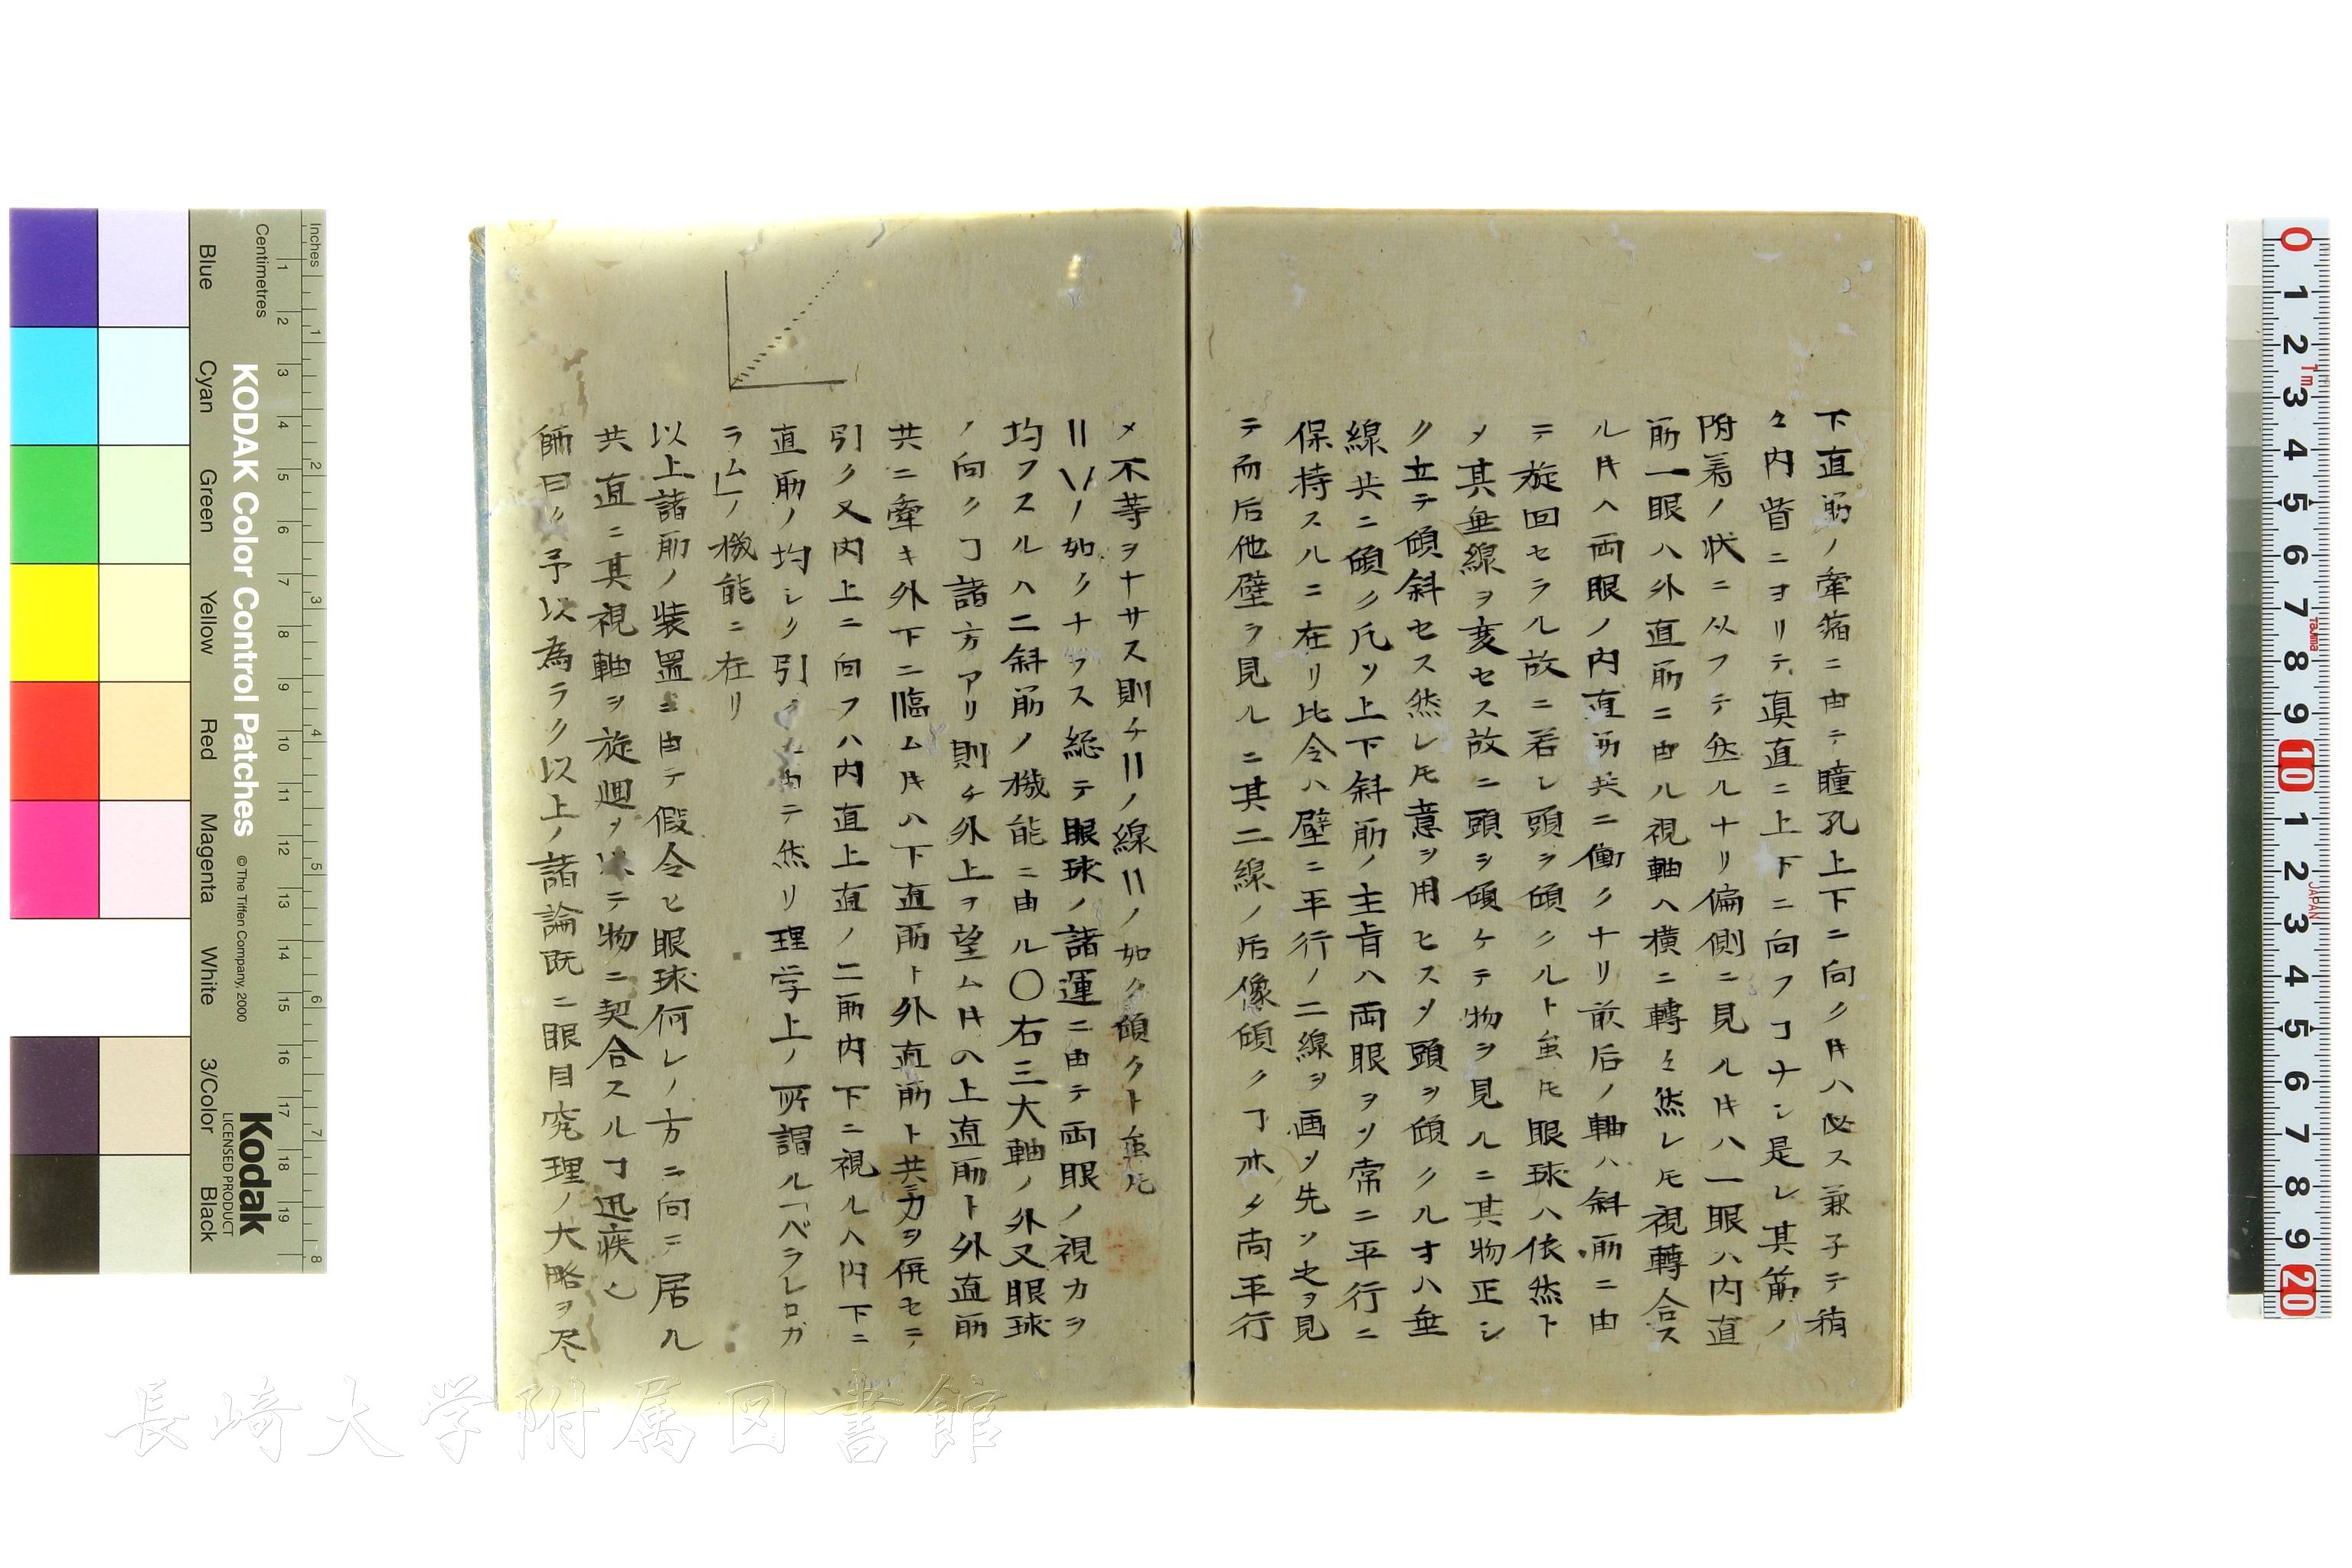 下直筋ノ牽縮ニ由テ瞳孔上下ニ向クﾄｷハ必ス兼子テ稍
々内眥ニヨリテ真直ニ上下ニ向フヿナシ是レ其筋ノ
附着ノ状ニ从フテ然ルナリ偏側ニ見ルﾄｷハ一眼ハ内直
筋一眼ハ外直筋ニ由ル視軸ヘ横ニ轉々然レﾄﾓ視轉合ス
ルﾄｷハ両眼ノ内直筋共ニ働クナリ前后ノ軸ハ斜筋ニ由
テ旋回セラル故ニ若レ頭ヲ傾クルト虽ﾄﾓ眼球ハ依然ト
メ其垂線ヲ変セス故ニ頭ヲ傾ケテ物ヲ見ルニ其物正シ
ク立テ傾斜セス然レﾄﾓ意ヲ用ヒスメ頭ヲ傾クルオハ垂
線共ニ傾ク凡ソ上下斜筋ノ主旨ハ両眼ヲメ常ニ平行ニ
保持スルニ在リ比令ハ壁ニ平行ノ二線ヲ画メ先ツ之ヲ見
テ而后他壁ヲ見ルニ其二線ノ后像傾クヿ亦タ両平行
メ不等ヲナサス則チ〢ノ線〢ノ如ク傾クト虽ﾄﾓ
〢 \/ノ如クナラス総テ眼球ノ諸運ニ由テ両眼ノ視力ヲ
均フスルハ二斜筋ノ機能ニ由ル〇右三大軸ノ外又眼球
ノ向クヿ諸方アリ則チ外上ヲ望ムﾄｷハ上直筋ト外直筋
共ニ牽キ外下ニ臨ムﾄｷハ下直筋ト外直筋ト共ニ力ヲ併セテ
引ク又内上ニ向フハ内直上直ノ二筋内下ニ視ルハ内下ニ
直筋ノ均シク引クニ由テ然リ理学上ノ所謂ル「パラレロガ
ラム」ノ機能ニ在リ
以上諸筋ノ装置ニ由テ假令ヒ眼球何レノ方ニ向テ居ル
共直ニ其視軸ヲ旋廻メ テ物ニ契合スルヿ迅疾也
師曰ク予以為ラク以上ノ諸論既ニ眼目究理ノ大略ヲ尽
KODAK Color Control Patches
© The Tiffen Company, 2000
Kodak
LICENSED PRODUCT
Inches
Centimetres
Blue
Cyan
Green
Yellow
Red
Magenta
White
3/Color
Black
長崎大学附属図書館